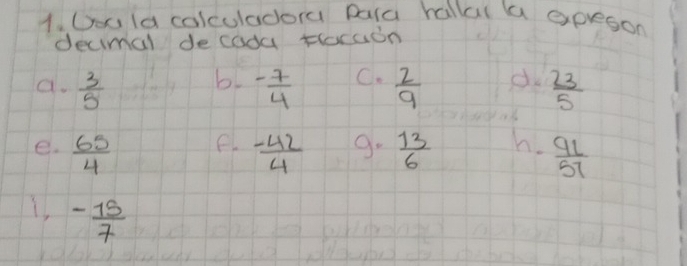 1. Usa la calculadora para hallar la expreson
decimal de cada fracción
a. 3/5 b. -7/4 c. 2/9 d. 23/5
e. 65/4 f. -42/4 g. 13/6 h. 91/51
i. -15/7